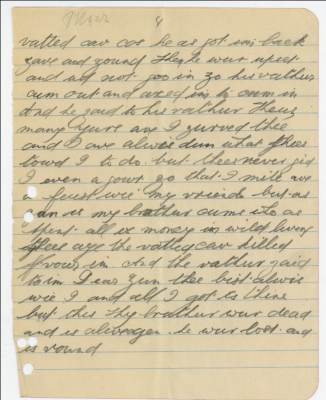 8
vatted cav cos he as got im back
zave and zound Then he wur upzet
and ud not goo in zo his vather
cum out and axed im to cum in
And he zaid to his vather Theuz
many yurs ave I zurved thee
and I ave alwis dun what thee
towd I to do. but thee never gid
I even a gowt zo that I mite ave
a feust wi my vriends but as
zoon as my brother cums who as
spent all is money in wild living
thee ave the vatted cav killed
vour im And the vather zaid
to im Dear Zun thee bist alwis
wi I and all I got is thine
but this thy brother wur dead
and is alive agen. he wur lost and
is vound